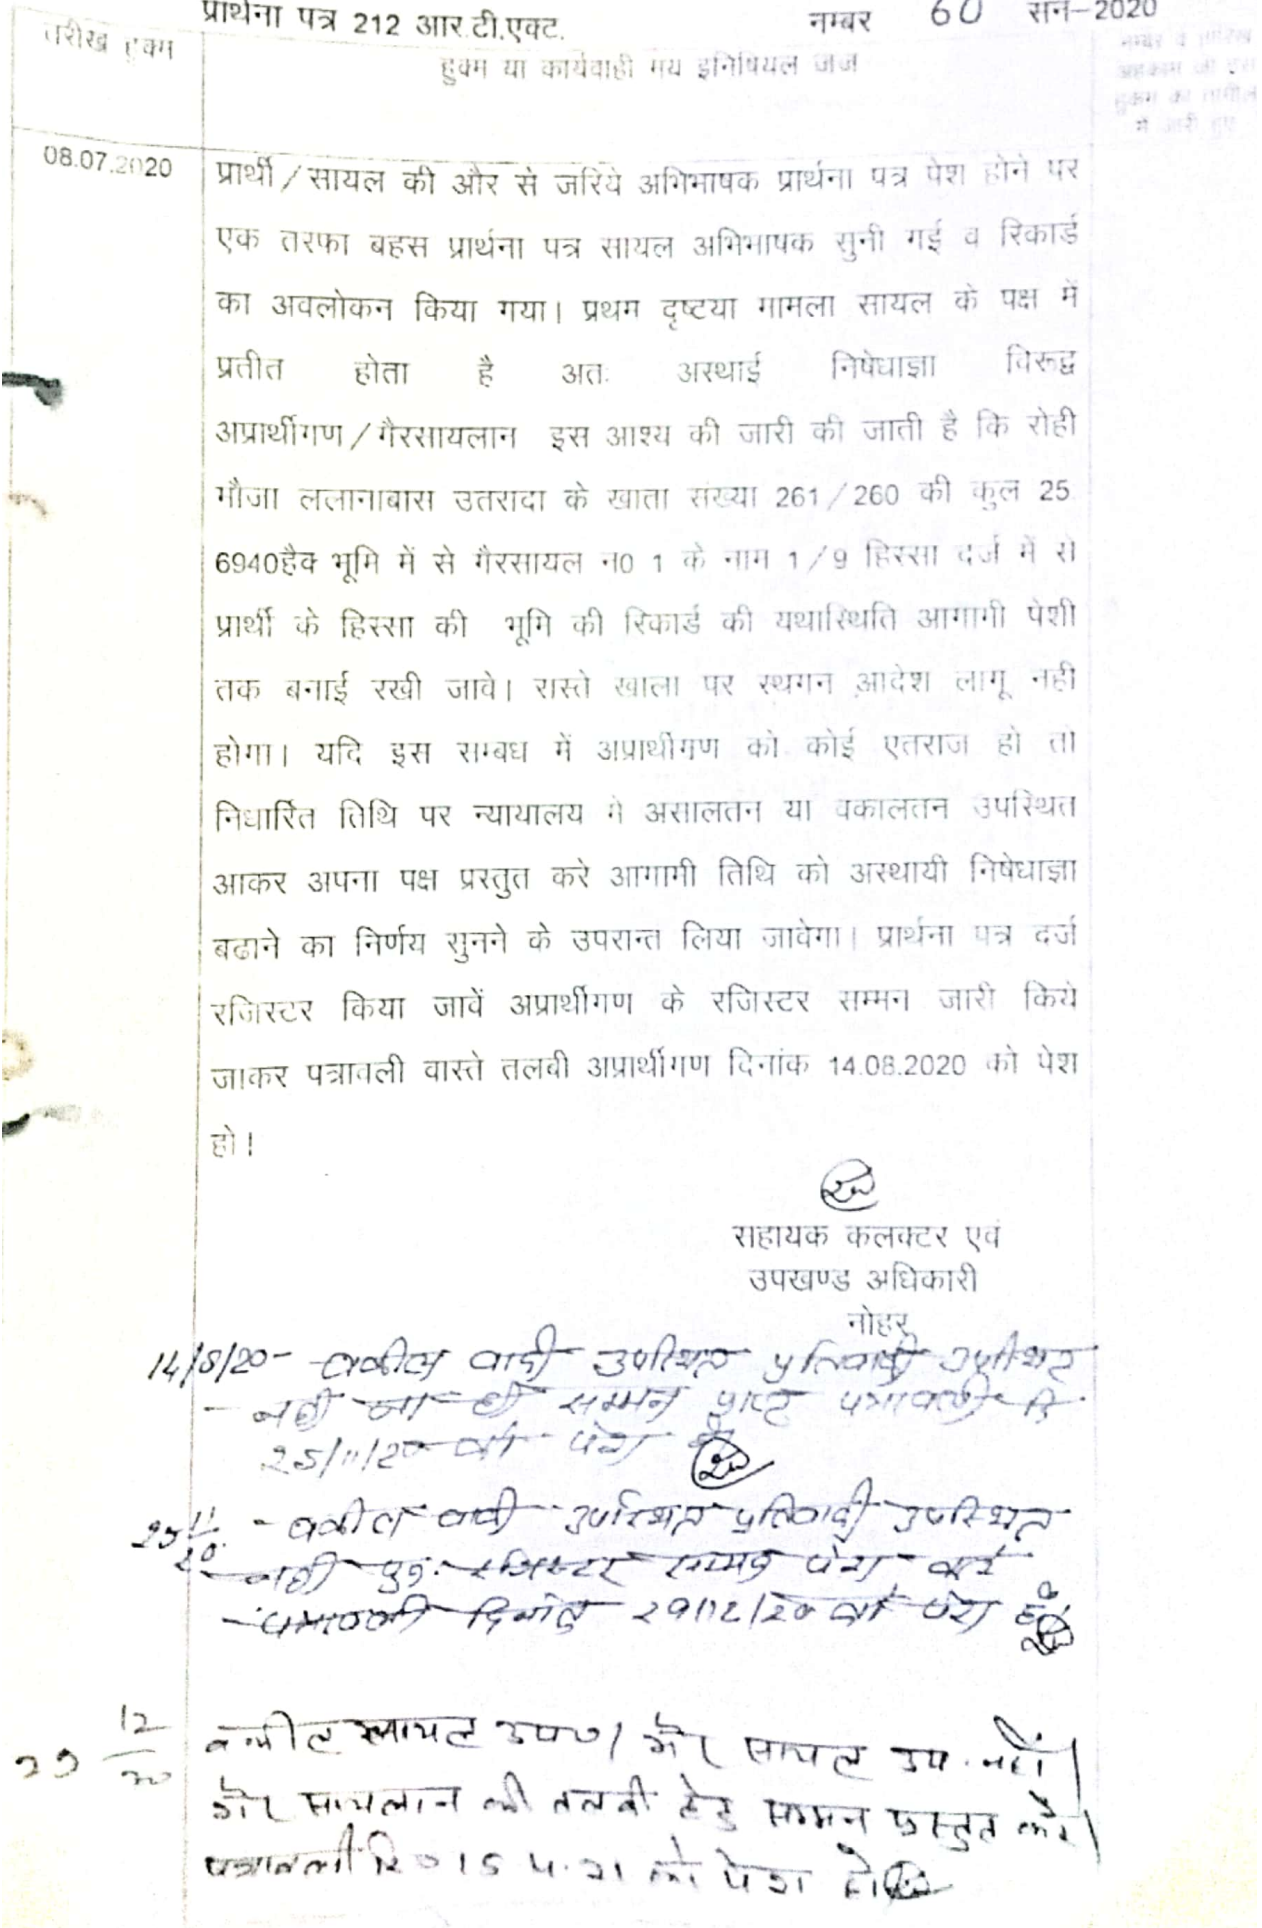 प्रार्थना पत्र 212 आर.टी.एक्ट. नम्बर 60 सन–2020
तरीख हुक्म
हुक्म या कार्यवाही मय इनिषियल जज
नम्बर व तारिख
अहकाम जो इस
हुकम का तामील
में जारी हुए
08.07.2020
प्रार्थी/सायल की और से जरिये अभिभाषक प्रार्थना पत्र पेश होने पर
एक तरफा बहस प्रार्थना पत्र सायल अभिभाषक सुनी गई व रिकार्ड
का अवलोकन किया गया। प्रथम दृष्टया मामला सायल के पक्ष में
प्रतीत होता है अतः अस्थाई निषेधाज्ञा विरूद्व
अप्रार्थीगण/गैरसायलान इस आश्य की जारी की जाती है कि रोही
मौजा ललानाबास उतरादा के खाता संख्या 261/260 की कुल 25
6940हैक भूमि में से गैरसायल न0 1 के नाम 1/9 हिस्सा दर्ज में से
प्रार्थी के हिस्सा की भूमि की रिकार्ड की यथास्थिति आगामी पेशी
तक बनाई रखी जावे। रास्ते खाला पर स्थगन आदेश लागू नही
होगा। यदि इस सम्बध में अप्रार्थीगण को कोई एतराज हो तो
निधार्रित तिथि पर न्यायालय मे असालतन या वकालतन उपस्थित
आकर अपना पक्ष प्रस्तुत करे आगामी तिथि को अस्थायी निषेधाज्ञा
बढाने का निर्णय सुनने के उपरान्त लिया जावेगा। प्रार्थना पत्र दर्ज
रजिस्टर किया जावें अप्रार्थीगण के रजिस्टर सम्मन जारी किये
जाकर पत्रावली वास्ते तलवी अप्रार्थीगण दिनांक 14.08.2020 को पेश
हो!
सहायक कलक्टर एवं
उपखण्ड अधिकारी
नोहर
14/8/20- वकील वादी उपस्थित प्रतिवादी उपस्थित
नही सम्मन प्राप्त पत्रावली दि
25/11/20 को पेश हो
25 11/20 - वकील वादी उपस्थित प्रतिवादी उपस्थित
नही पुनः रजिस्टर सम्मन पेश करे
पत्रावली दिनांक 29/12/20 को पेश हो
29 12/20 वकील सायल उप0। गैर सायल उप. नहीं।
गैर सायलान की तलबी हेतु सम्मन प्रस्तुत करे।
पत्रावली दि0 15.4.21 को पेश हो।